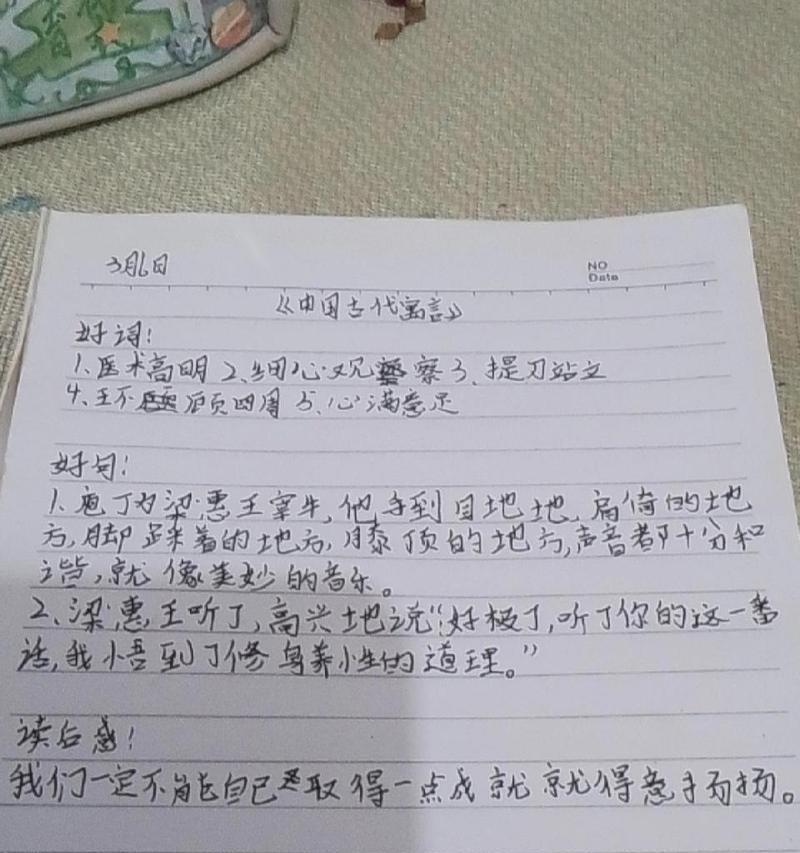 3月6日
NO
Date
《中国古代寓言》
好词:
1、医术高明 2、细心观察 3、提刀站文
4、王不顾四周 5、心满意足
好句:
1、庖丁为梁惠王宰牛,他,手到目地地,肩倚的地
方,脚踩着的地方,膝顶的地方,声音都十分和
谐,就像美妙的音乐。
2、梁惠王听了,高兴地说“好极了,听了你的这一番
话,我悟到了修身养性的道理。”
读后感!
我们一定不能自己取得一点成就就得意扬扬。